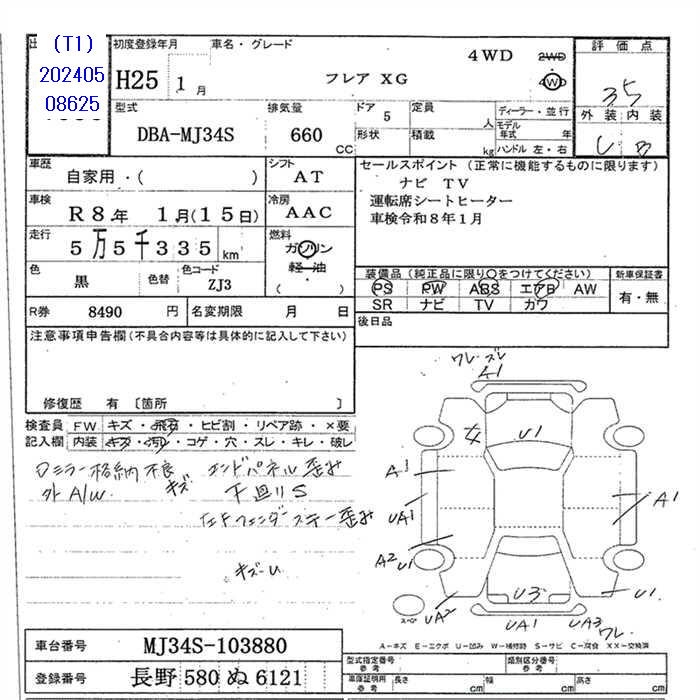 (T1)
202405
08625
初度登録年月
H25 1 月
車名・グレード
4WD
フレア XG
2WD
4WD
評価点
3.5
外装 内装
C B
型式
DBA-MJ34S
排気量
660 CC
ドア
5
定員
人
形状
積載
kg
ディーラー・並行
モデル年式 年
ハンドル 左・右
車歴
自家用・( )
シフト
AT
車検
R8年 1月(15日)
冷房
AAC
走行
5万5千335 km
燃料
ガソリン
軽・油
( ・ )
色
黒
色替
色コード
ZJ3
R券 8490 円
名変期限 月 日
セールスポイント (正常に機能するものに限ります)
ナビ TV
運転席シートヒーター
車検令和8年1月
装備品(純正品に限り○をつけてください)
PS PW ABS エアB AW
SR ナビ TV カワ
新車保証書
有・無
後日品
注意事項申告欄(不具合内容等は具体的に記入して下さい)
修復歴 有 〔箇所 〕
検査員 FW キズ・飛石・ヒビ割・リペア跡・×要
記入欄 内装 キズ・汚れ・コゲ・穴・スレ・キレ・破レ
ロミラー格納不良
外A/W キズ
エンドパネル歪み
下廻りS
左Fフェンダーステー歪み
キズ・U
ワレ・ズレ
A1
U1
A1
UA1
A1
A2
U1
UA2
U3
UA1
UA3
ワレ
U1
スペア
A-キズ E-エクボ U-凹み W-補修跡 S-サビ C-腐食 XX-交換済
車台番号 MJ34S-103880
登録番号 長野 580 ぬ 6121
型式指定番号
参考
類別区分番号
参考
車庫証明用
参考
長さ cm 幅 cm 高さ cm